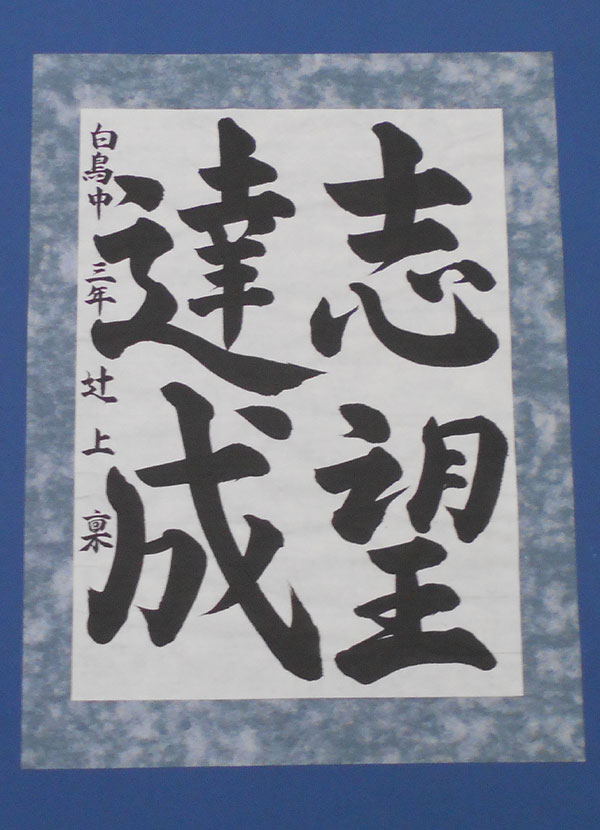 志望
達成
白鳥中 三年 辻上 凛